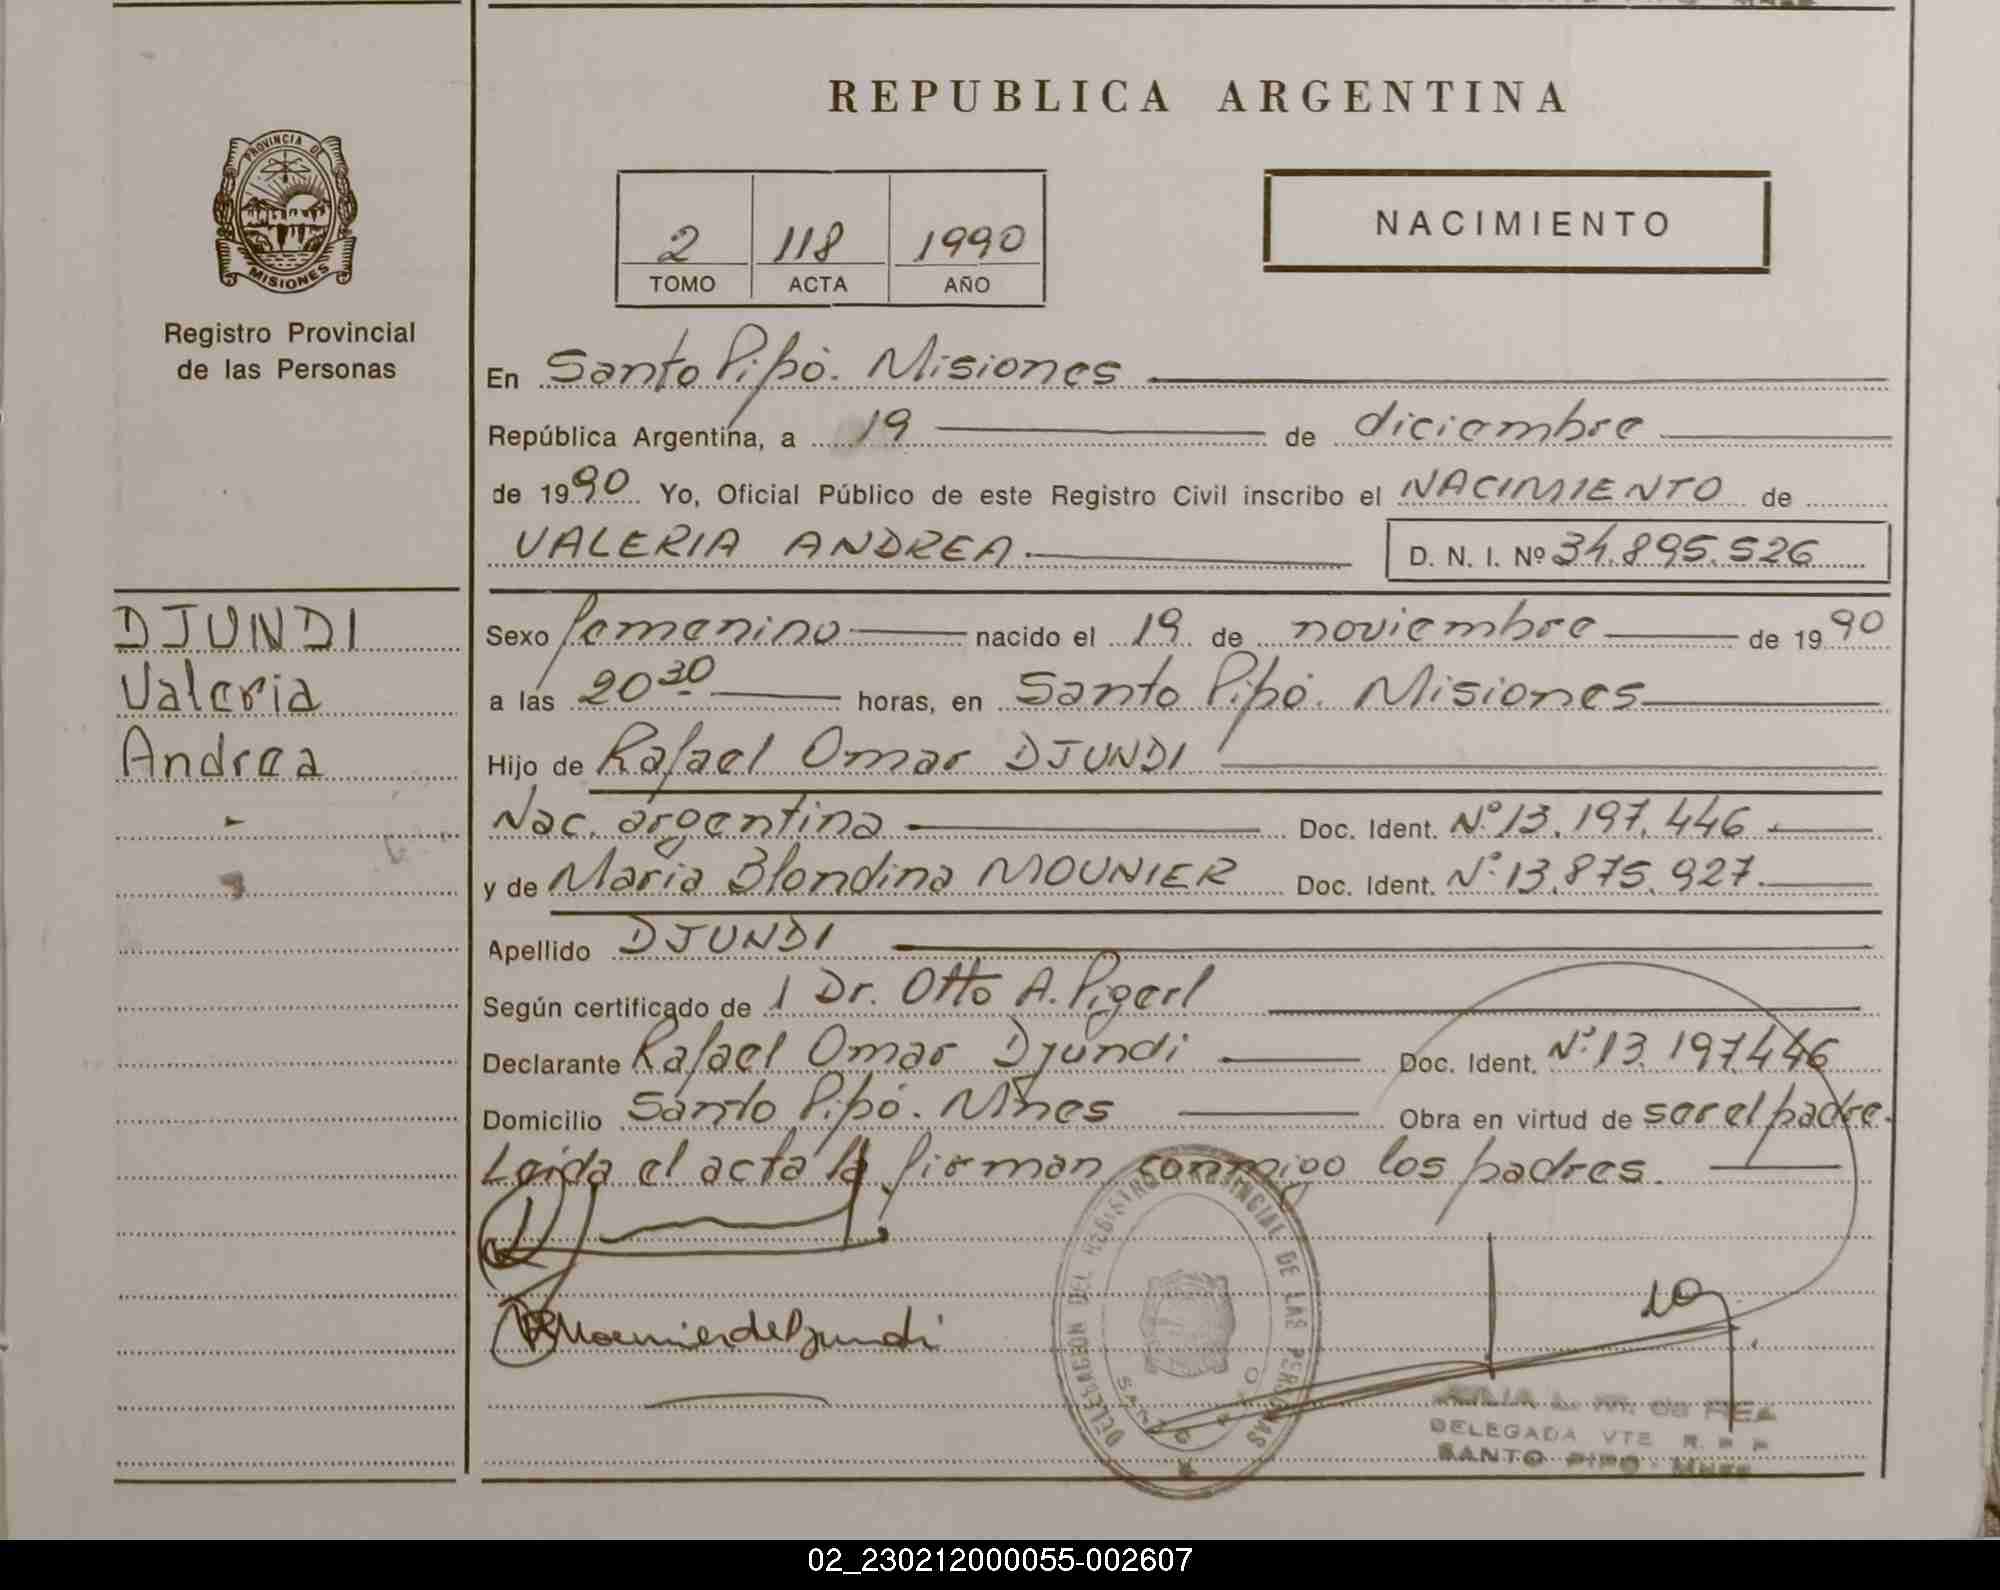 REPUBLICA ARGENTINA
PROVINCIA DE
MISIONES
Registro Provincial
de las Personas
2 118 1990
TOMO ACTA AÑO
NACIMIENTO
En Santo Pipó. Misiones
República Argentina, a 19 de diciembre
de 1990 Yo, Oficial Público de este Registro Civil inscribo el NACIMIENTO de
VALERIA ANDREA. D. N. I. Nº 34.895.526
DJUNDI
Valeria
Andrea
Sexo femenino nacido el 19 de noviembre de 1990
a las 20 30 horas, en Santo Pipó. Misiones
Hijo de Rafael Omar DJUNDI
Nac. argentina Doc. Ident. Nº 13.197.446
y de Maria Blondina MOUNIER Doc. Ident. Nº 13.875.927.
Apellido DJUNDI
Según certificado de 1 Dr. Otto A. Pigerl
Declarante Rafael Omar Djundi Doc. Ident. Nº 13.197.446
Domicilio Santo Pipó. Mnes Obra en virtud de ser el padre.
Leída el acta la firman conmigo los padres.
Mounier de Djundi
DELEGACION DEL REGISTRO PROVINCIAL DE LAS PERSONAS
SANTO PIPO
L. M. de REA
DELEGADA VTE R. P. P.
SANTO PIPO - Mnes
02_230212000055-002607